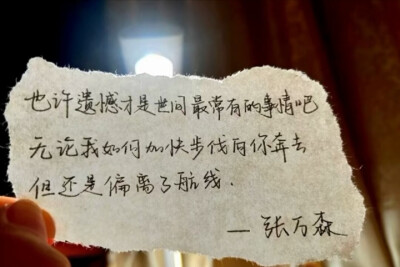 也许遗憾才是世间最常有的事情吧
无论我如何加快步伐向你奔去
但还是偏离了航线.
—张万森